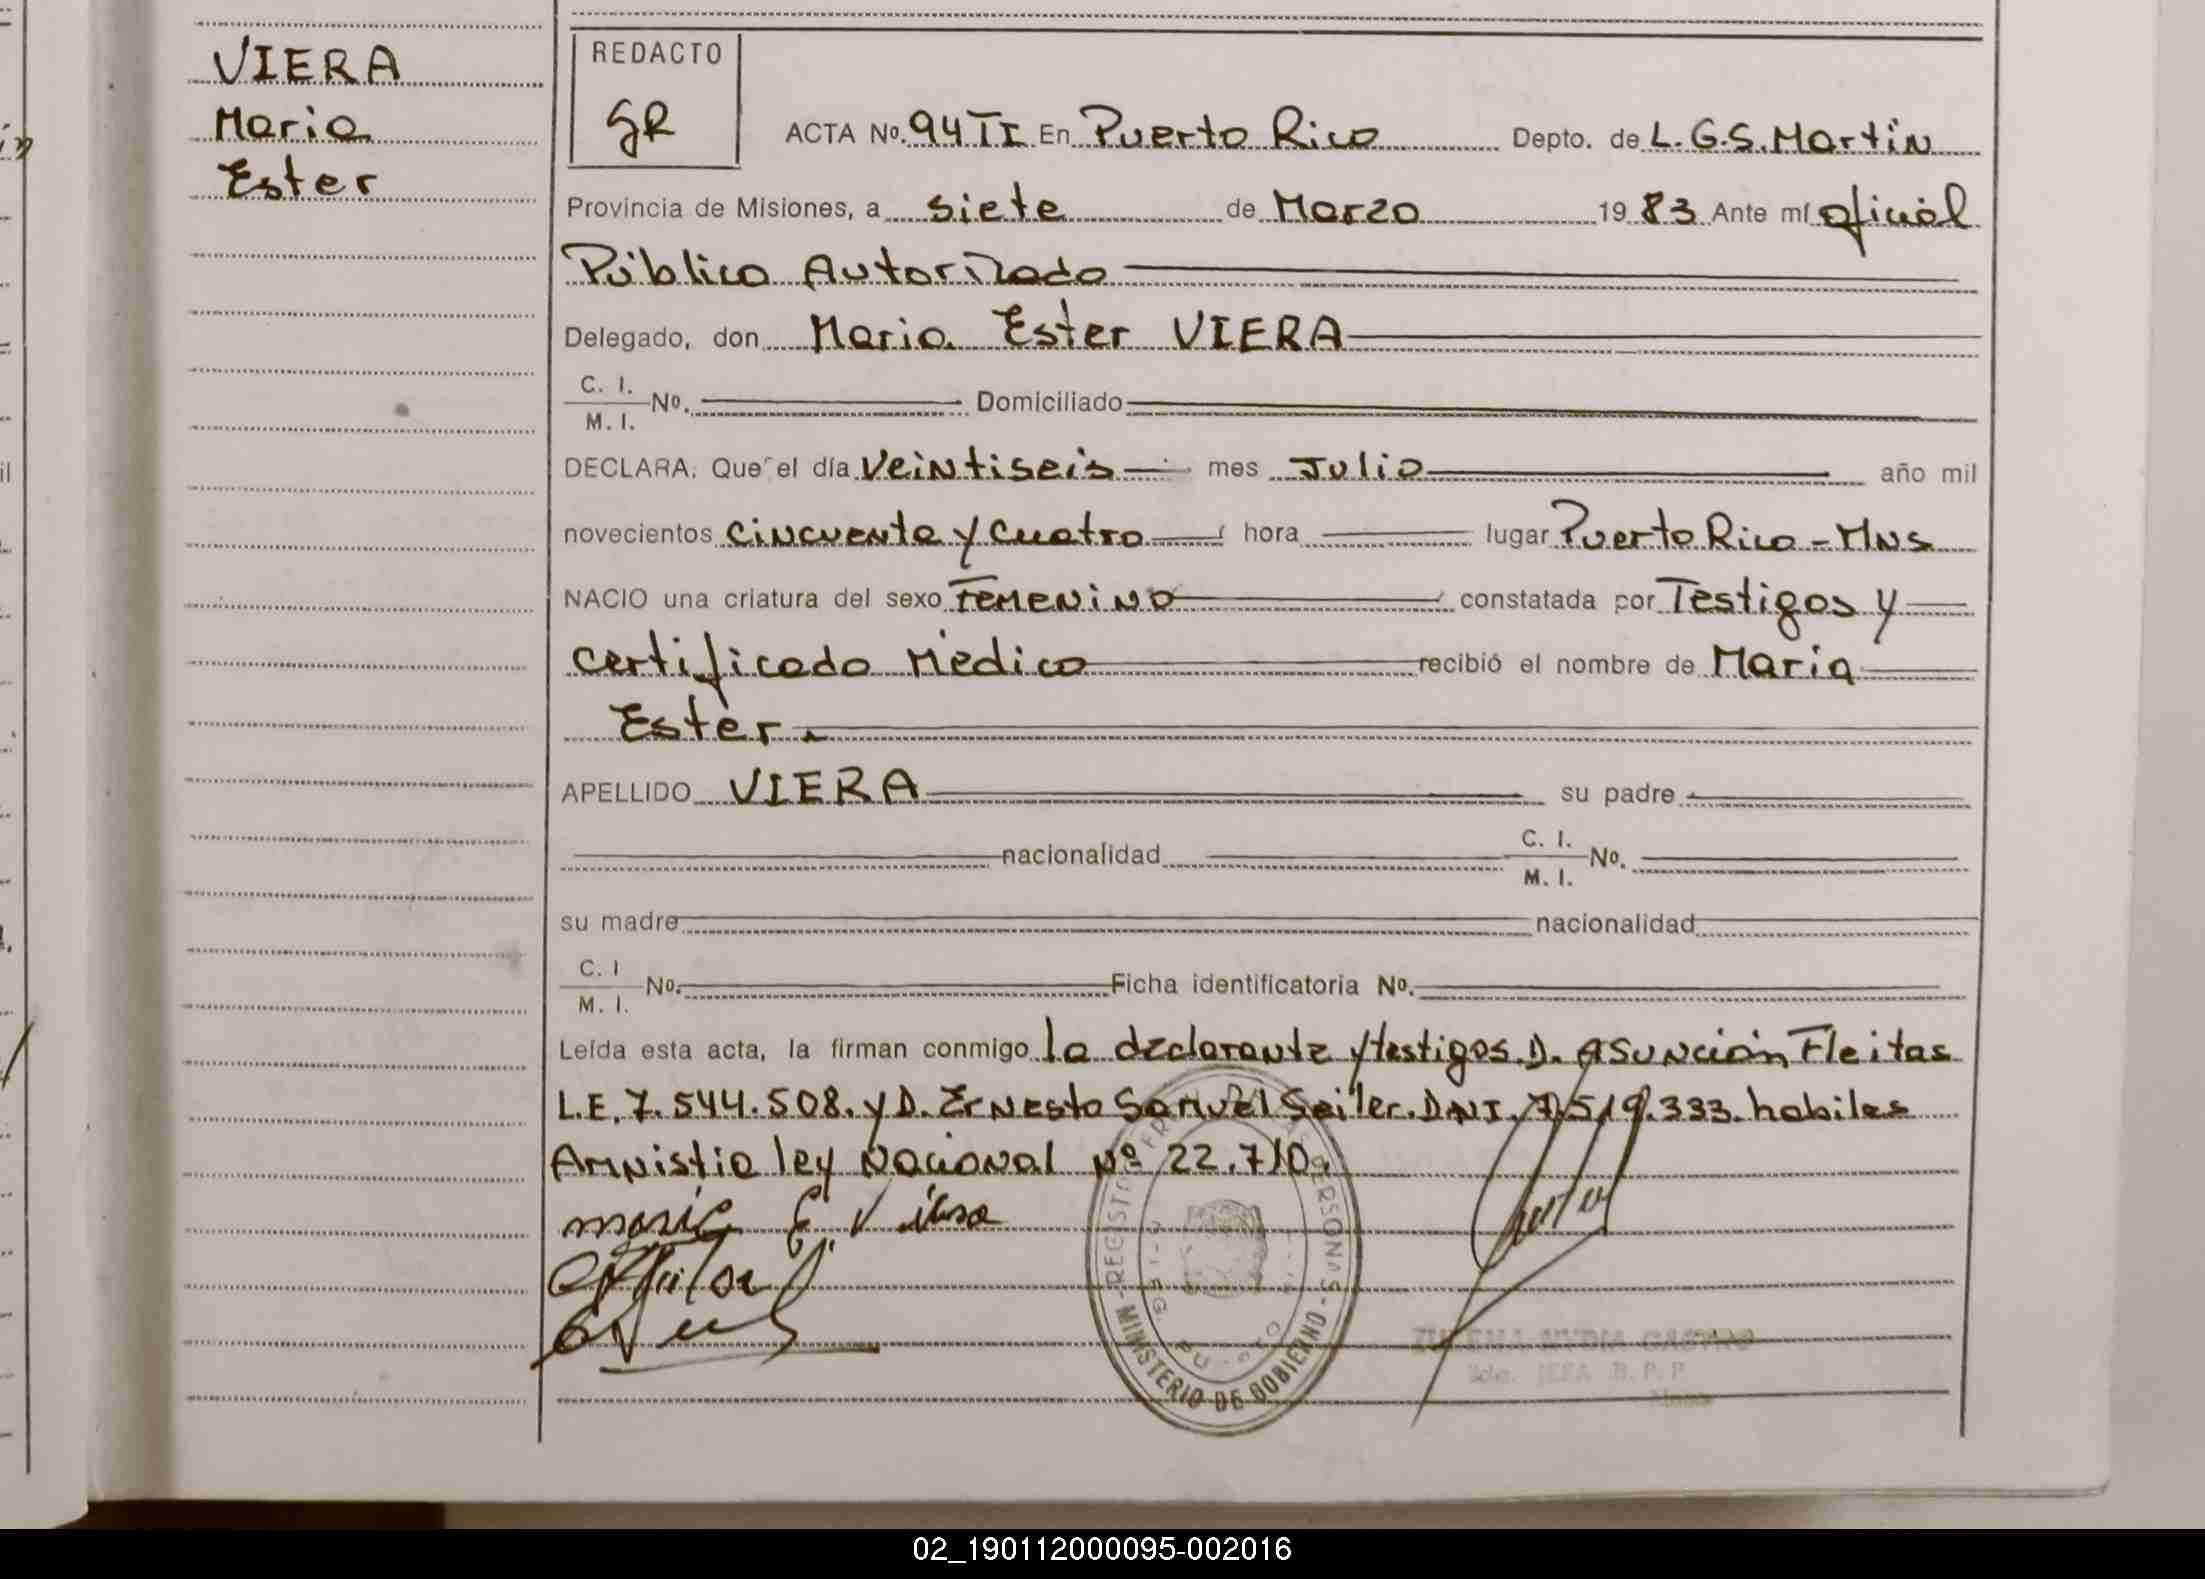 VIERA
Maria
Ester
REDACTO
GR
ACTA Nº. 94 II En Puerto Rico Depto. de L. G. S. Martin
Provincia de Misiones, a siete de Marzo 1983 Ante mí oficial
Público Autorizado
Delegado, don Maria Ester VIERA
C. I. M. I. Nº. Domiciliado
DECLARA: Que el día Veintiseis mes Julio año mil
novecientos cincuenta y cuatro hora lugar Puerto Rico - Mns
NACIO una criatura del sexo Femenino constatada por Testigos y
certificado Médico recibió el nombre de Maria
Ester.
APELLIDO VIERA su padre
nacionalidad C. I. M. I. Nº.
su madre nacionalidad
C. I M. I. Nº. Ficha identificatoria Nº.
Leída esta acta, la firman conmigo la declarante y testigos D. Asunción Fleitas
L.E. 7.544.508. y D. Ernesto Samuel Seiler. DNI. 7.519.333. habiles
Amnistia ley Nacional Nº 22.710.
Maria E Viera
REGISTRO PERSONAS - MINISTERIO DE GOBIERNO -
ZULEMA NYDIA CASTRO
JEFA R. P. P.
02_190112000095-002016